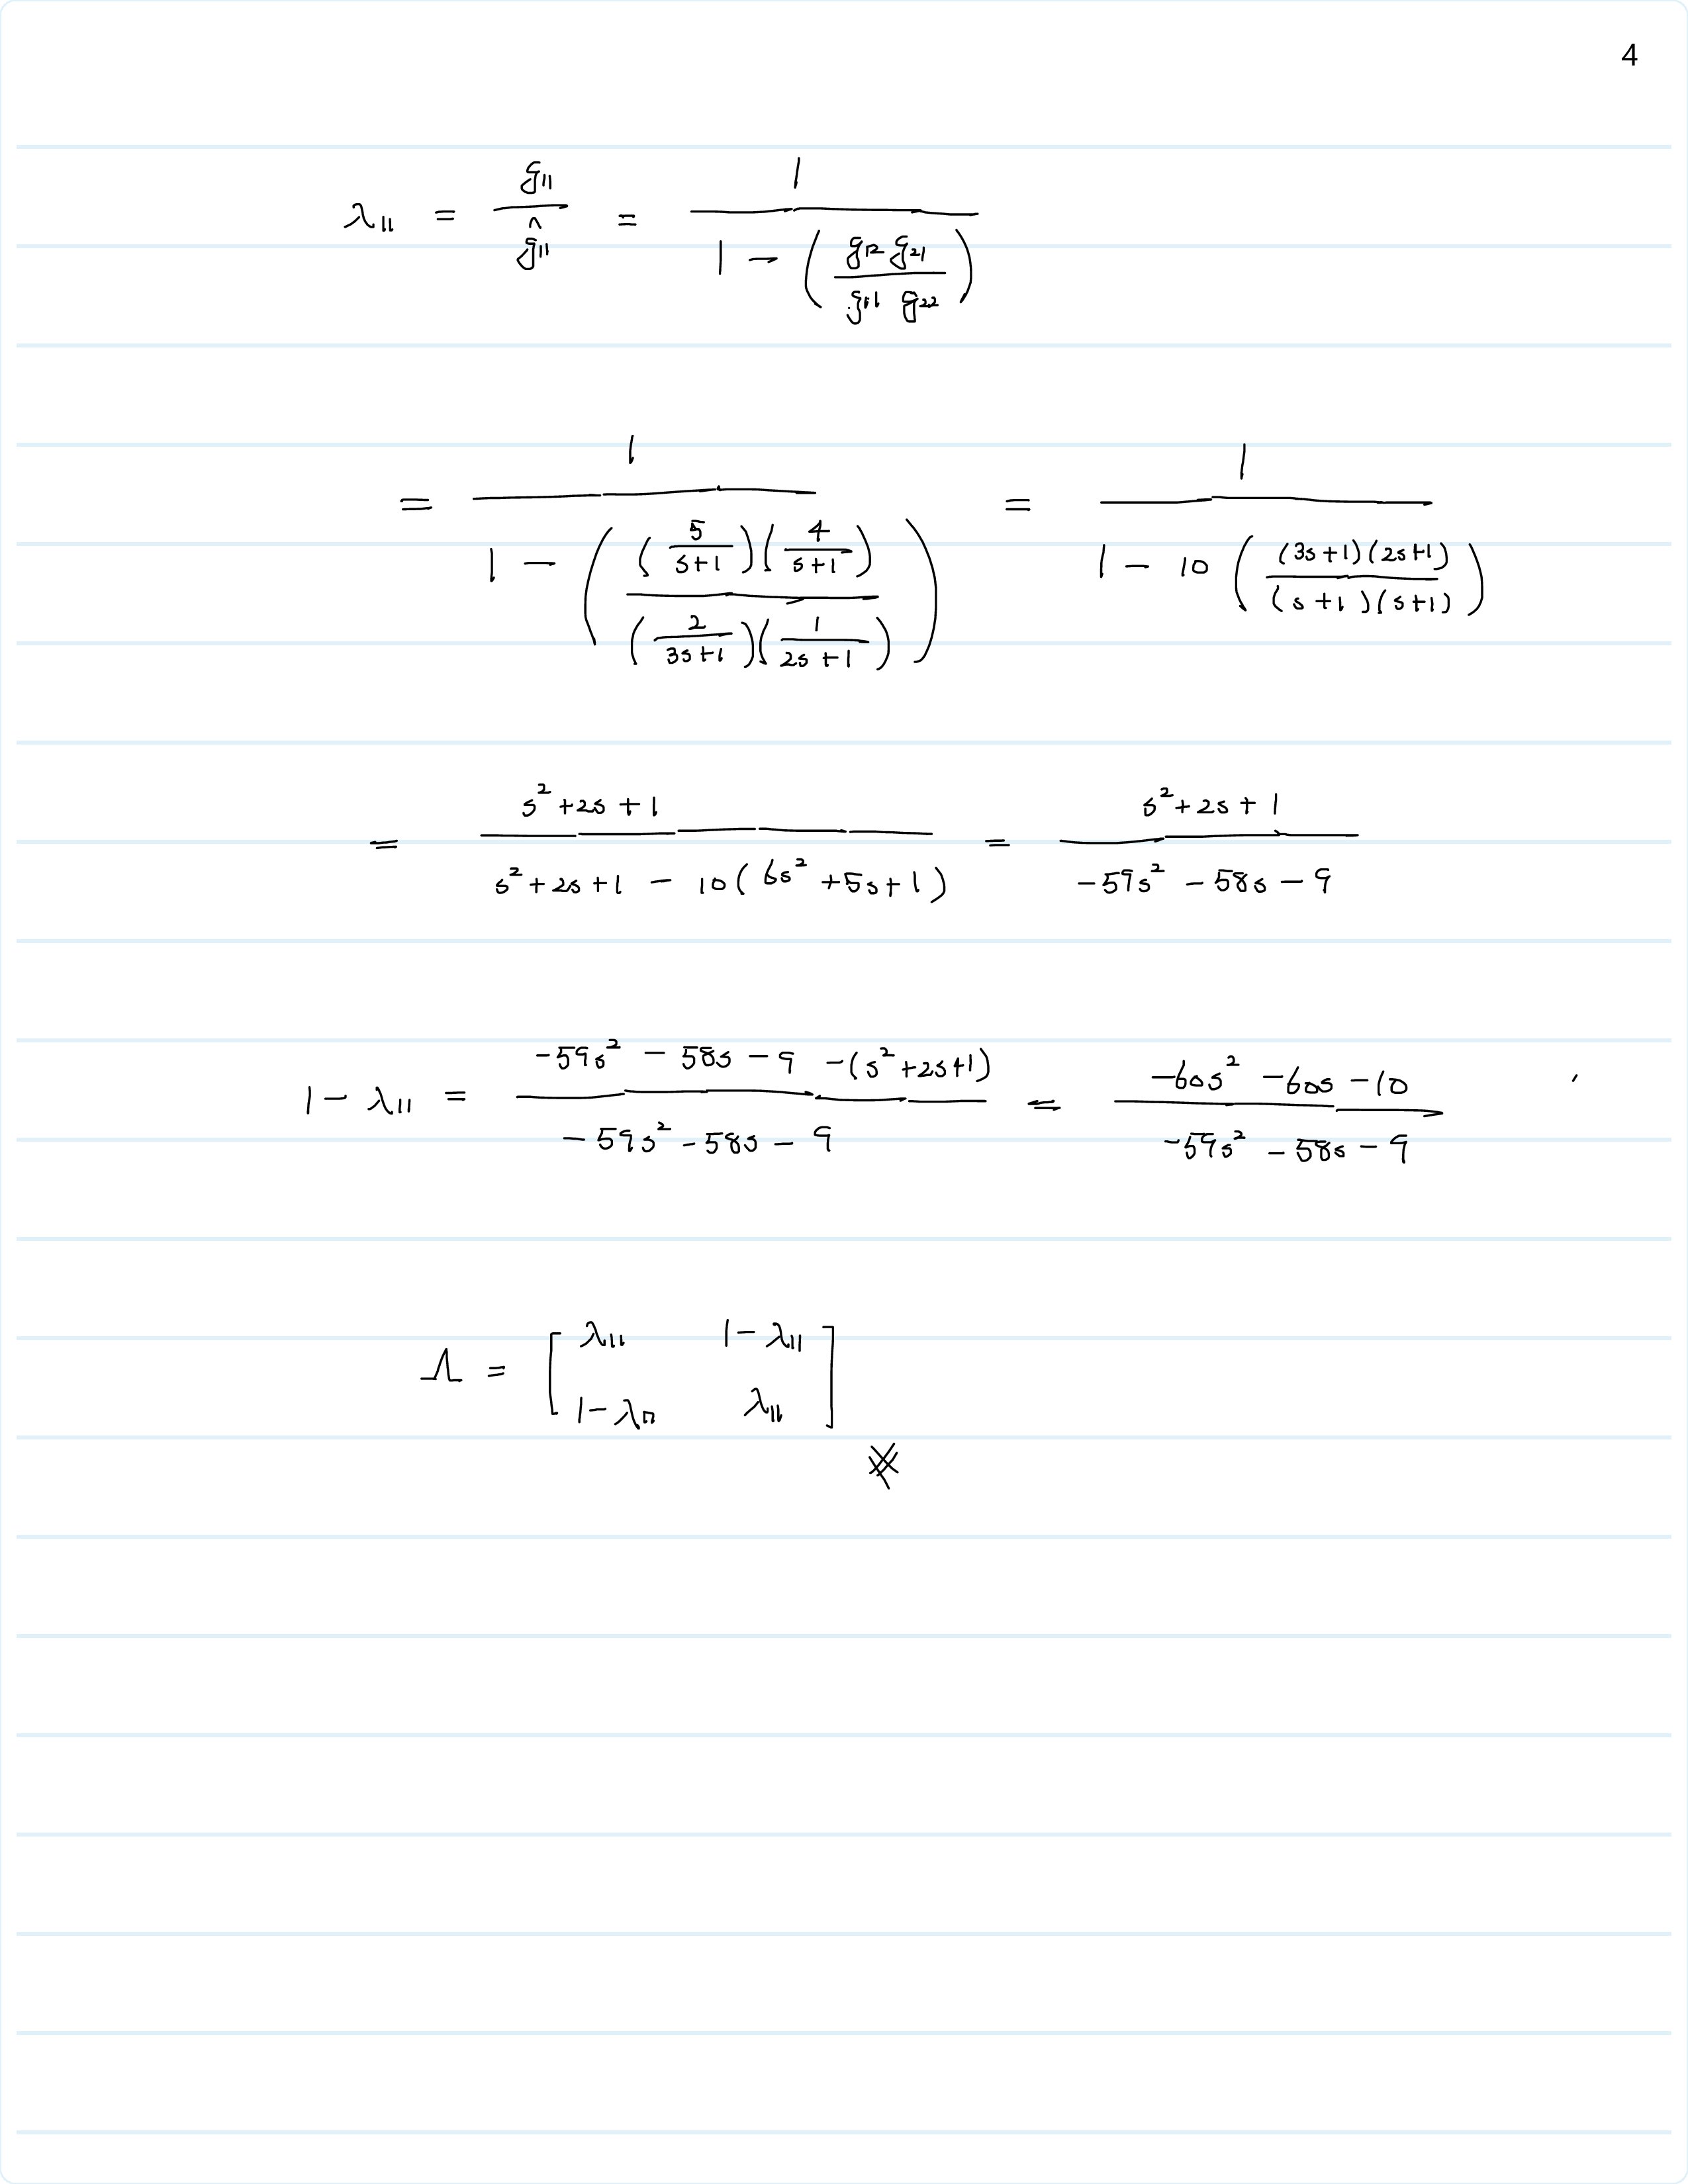 4
λ₁₁ = g₁₁ / ĝ₁₁ = 1 / (1 - (g₁₂ g₂₁ / g₁₁ g₂₂))
= 1 / (1 - ((5/(s+1))(4/(s+1)) / (2/(3s+1))(1/(2s+1)))) = 1 / (1 - 10 ((3s+1)(2s+1) / (s+1)(s+1)))
= (s²+2s+1) / (s²+2s+1 - 10(6s²+5s+1)) = (s²+2s+1) / (-59s² - 58s - 9)
1 - λ₁₁ = (-59s² - 58s - 9 -(s²+2s+1)) / (-59s² - 58s - 9) = (-60s² - 60s - 10) / (-59s² - 58s - 9)
Λ = [ λ₁₁ 1-λ₁₁
1-λ₁₁ λ₁₁ ]